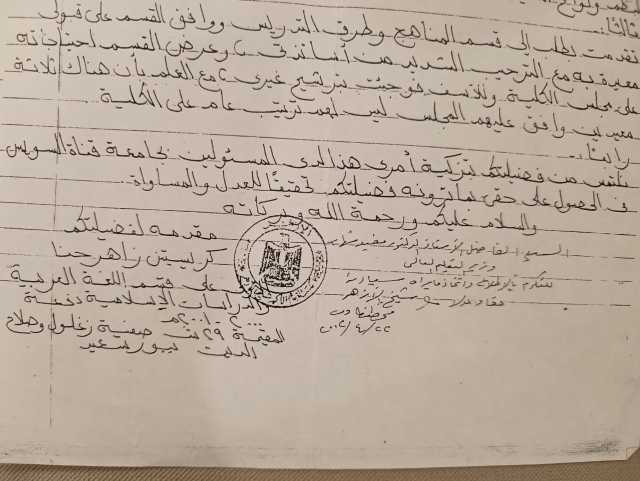 ثالثًا:
تقدمت بطلب إلى قسم المناهج وطرق التدريس ووافق القسم على قبول
معيدة به مع الترحيب الشديد من أساتذتى، وعرض القسم احتياجاته
على مجلس الكلية وللأسف فوجئت بترشيح غيرى، مع العلم بأن هناك ثلاثة
معيدين وافق عليهم المجلس ليس لهم ترتيب عام على الكلية
رابعًا:
من فضيلتكم تزكية أمرى هذا لدى المسئولين بجامعة قناة السويس
فى الحصول على حقى بما ترونه فضيلتكم تحقيقًا للعدل والمساواة.
والسلام عليكم ورحمة الله وبركاته
مقدمه لفضيلتكم
كريستين زاهر حنا
على قسم اللغة العربية
والدراسات الإسلامية دفعة
٢٠٠٠ - ٢٠٠١م
المقيمة ٢٩ ش صفية زغلول وصلاح
الدين بورسعيد
السيد الفاضل الأستاذ الدكتور مفيد شهاب
وزير التعليم العالى
شيخ الأزهر
محمد طنطاوى
٢٢/٤/٢٠٠٢